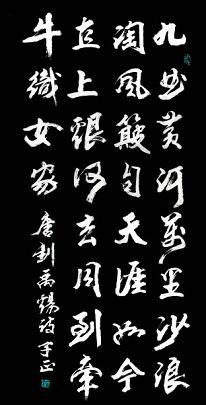 九曲黄河萬里沙浪
淘風簸自天涯如今
直上銀河去同到牽
牛織女家
唐劉禹錫詩